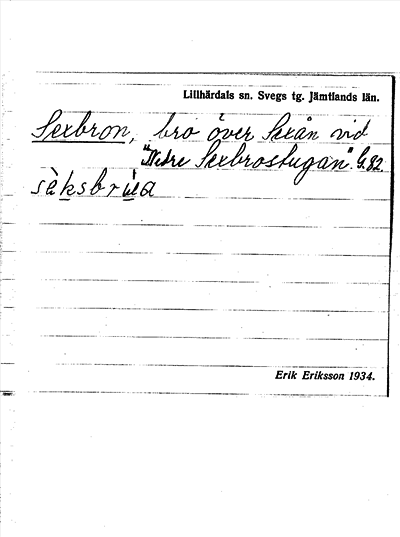 Lillhärdals sn. Svegs tg. Jämtlands län.
Sexbron, bro över Sexån vid
"Nedre Sexbrostugan". G.82.
Erik Eriksson 1934.